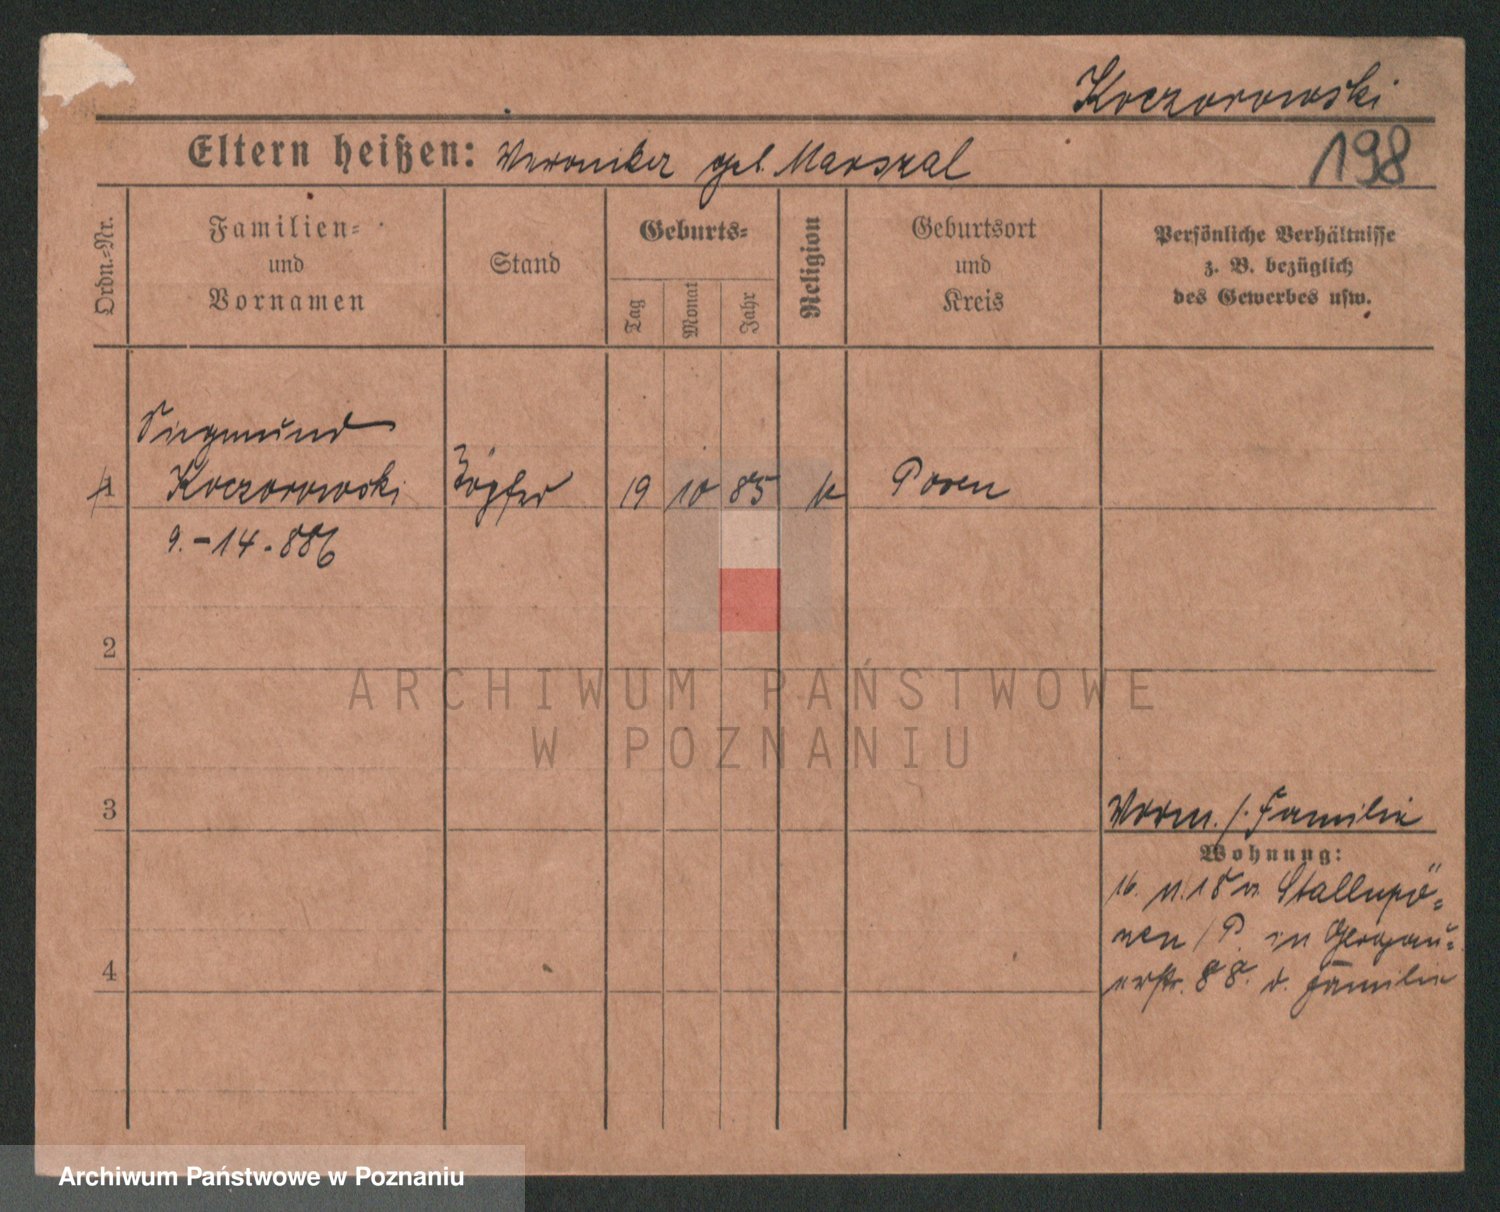 Koczorowski
198
Eltern heißen: Veronika geb. Marszal
Ordn.-Nr.
Familien-
und
Vornamen
Stand
Geburts-
Tag
Monat
Jahr
Religion
Geburtsort
und
Kreis
Persönliche Verhältnisse
z. B. bezüglich
des Gewerbes usw.
Siegmund
1 Koczorowski Töpfer 19 10 85 k Posen
9.-14.886
2
3
Worm. /. Familie
Wohnung:
16. 11. 18 v. Stallupö-
nen / P. in Glogau-
erstr. 88. d. Familie
4
ARCHIWUM PAŃSTWOWE
W POZNANIU
Archiwum Państwowe w Poznaniu